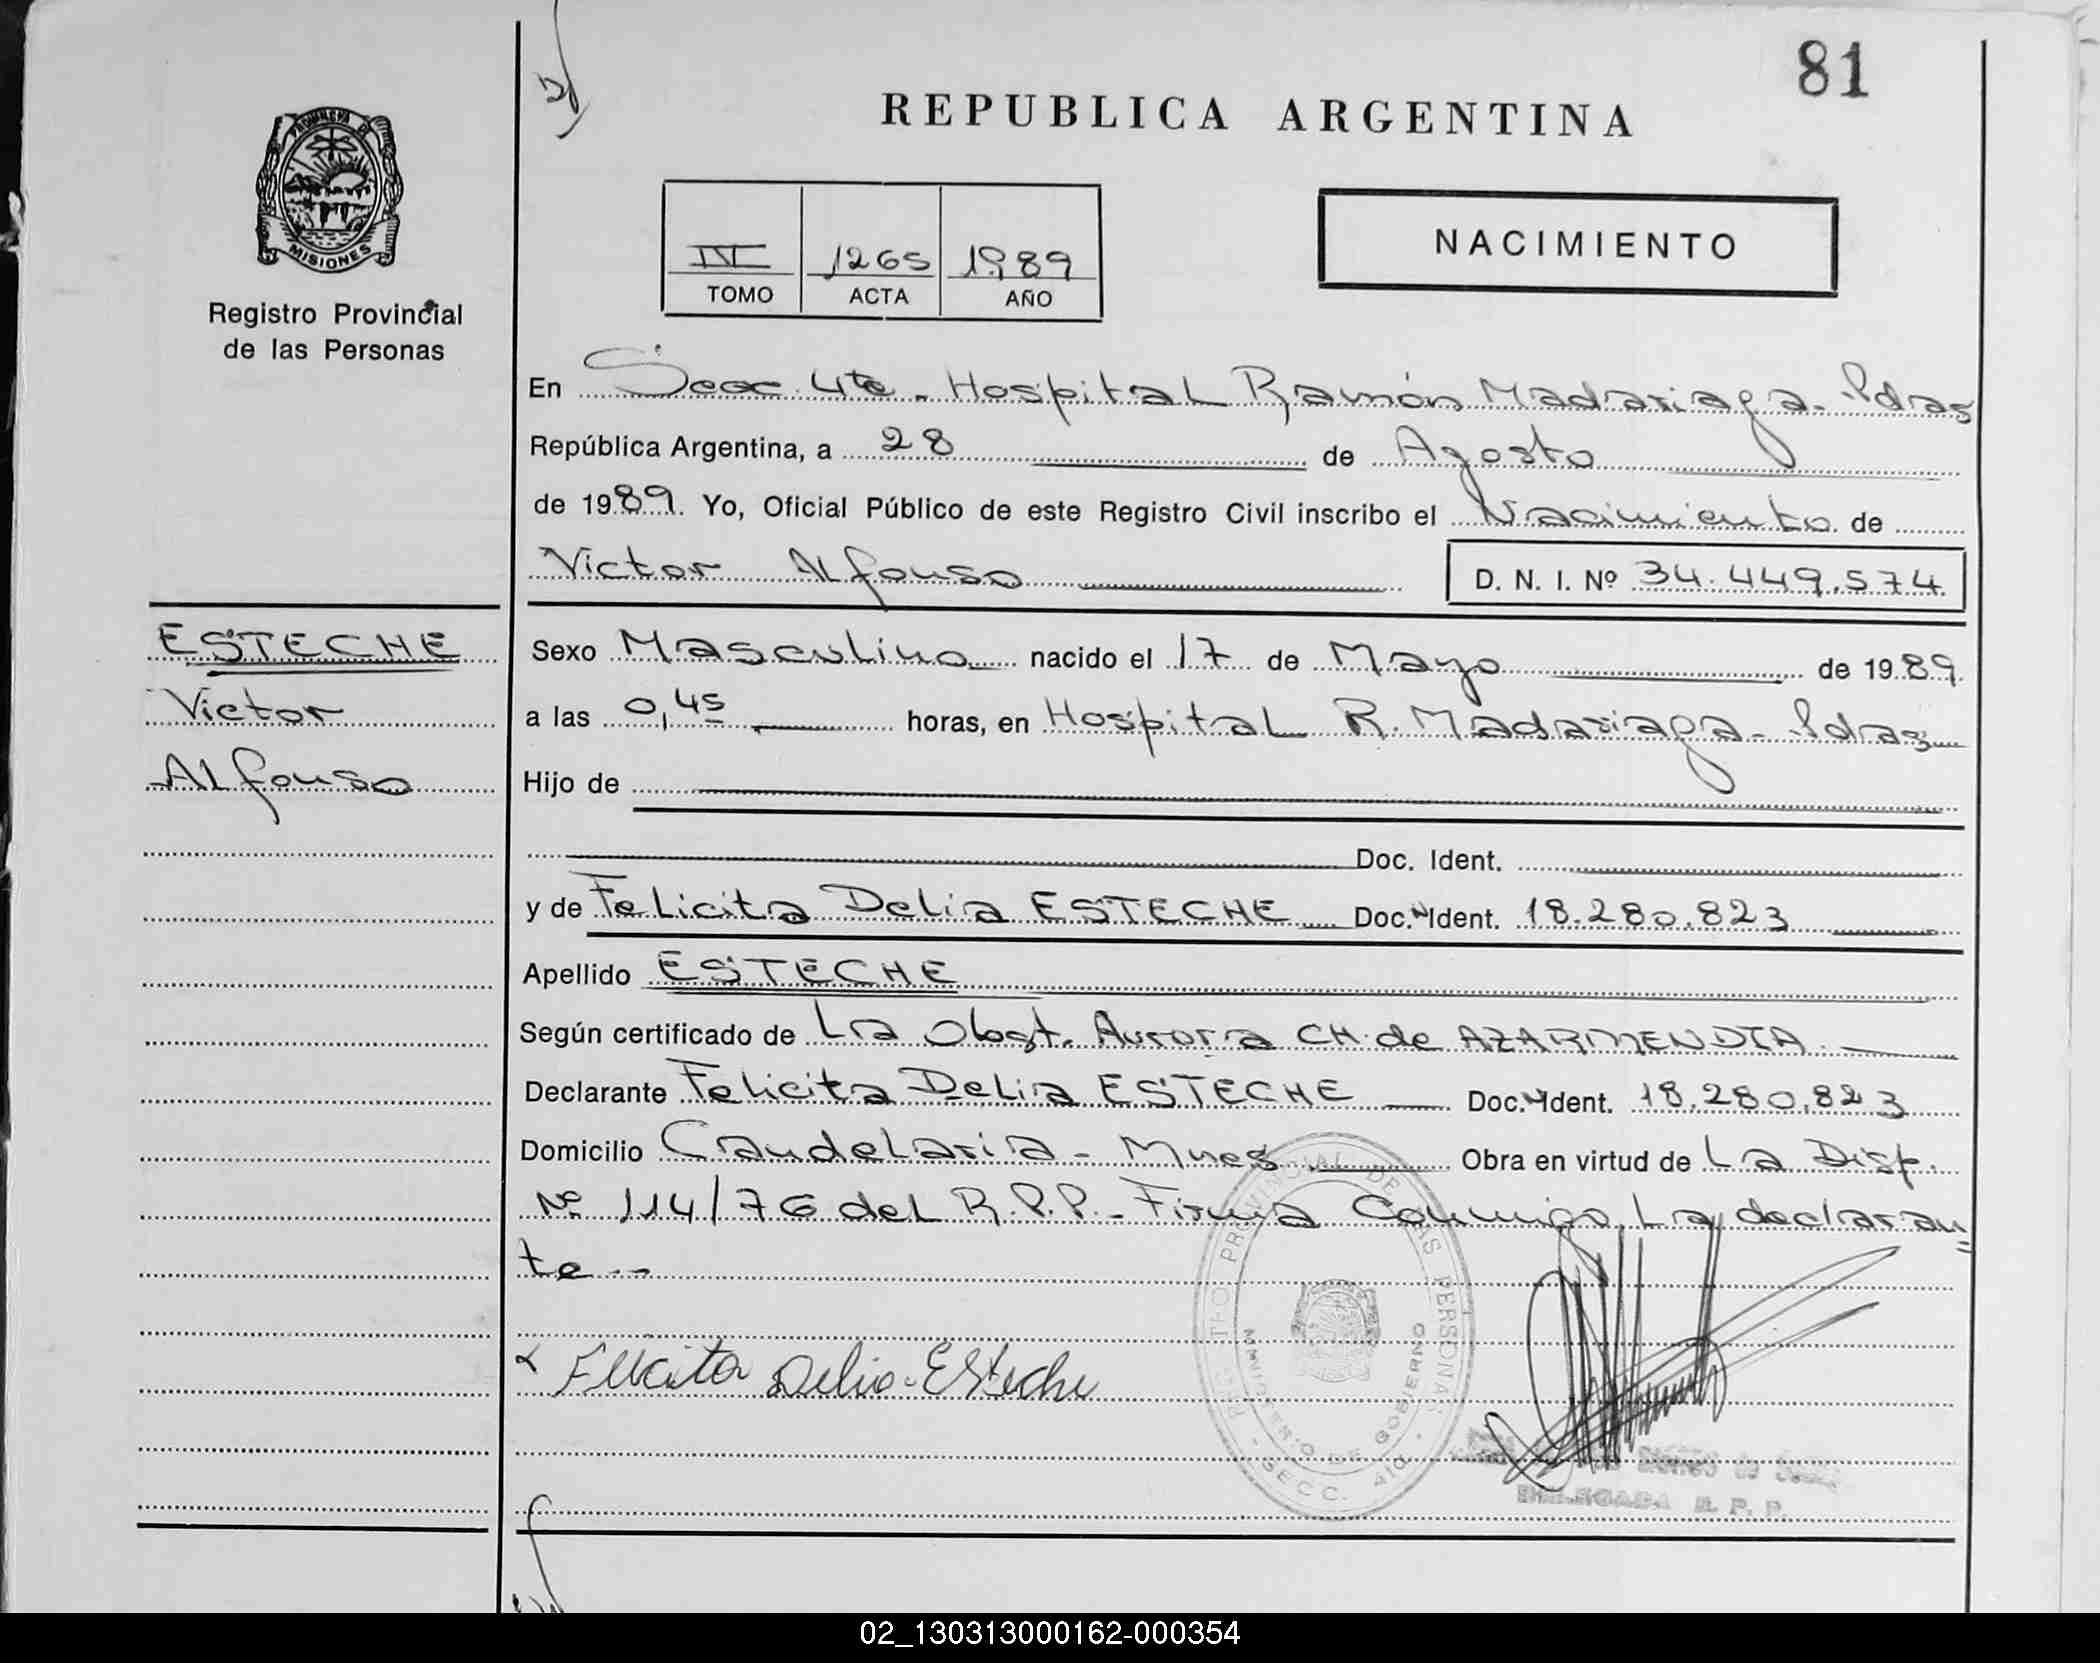 81
REPUBLICA ARGENTINA
PROVINCIA DE
MISIONES
Registro Provincial
de las Personas
1265 1989
TOMO ACTA AÑO
NACIMIENTO
En Secc 4ta. Hospital Ramón Madariaga - Pdas
República Argentina, a 28 de Agosto
de 1989. Yo, Oficial Público de este Registro Civil inscribo el Nacimiento de
Victor Alfonso D. N. I. Nº 34.449.574
ESTECHE
Victor
Alfonso
Sexo Masculino nacido el 17 de Mayo de 1989.
a las 0,45 horas, en Hospital R. Madariaga - Pdas
Hijo de
Doc. Ident.
y de Felicita Delia ESTECHE Doc. Ident. 18.280.823
Apellido ESTECHE
Según certificado de La Obst. Aurora CH. de AZARMENDIA
Declarante Felicita Delia ESTECHE Doc. Ident. 18.280.823
Domicilio Candelaria - Mnes Obra en virtud de La Disp.
Nº 114/76 del R.P.P. - Firma Conmigo La declaran=
te --
Felicita Delia Esteche
REGISTRO PROVINCIAL DE LAS PERSONAS
MINISTERIO DE GOBIERNO
SECC. 4ta.
DELEGADA R. P. P.
02_130313000162-000354